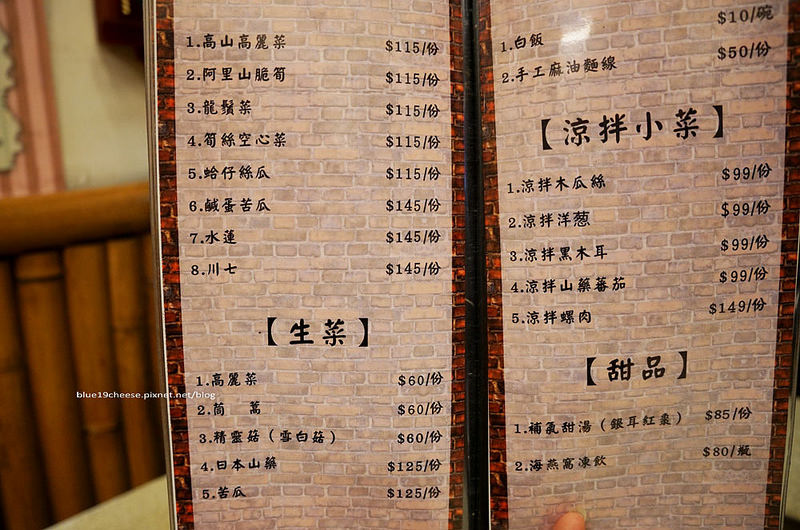 1.高山高麗菜 $115/份
2.阿里山脆筍 $115/份
3.龍鬚菜 $115/份
4.筍絲空心菜 $115/份
5.蛤仔絲瓜 $115/份
6.鹹蛋苦瓜 $145/份
7.水蓮 $145/份
8.川七 $145/份
【生菜】
1.高麗菜 $60/份
2.茼 蒿 $60/份
3.精靈菇（雪白菇） $60/份
4.日本山藥 $125/份
5.苦瓜 $125/份
blue19cheese.pixnet.net/blog
1.白飯 $10/碗
2.手工麻油麵線 $50/份
【涼拌小菜】
1.涼拌木瓜絲 $99/份
2.涼拌洋葱 $99/份
3.涼拌黑木耳 $99/份
4.涼拌山藥蕃茄 $99/份
5.涼拌螺肉 $149/份
【甜品】
1.補氣甜湯（銀耳紅棗） $85/份
2.海燕窩凍飲 $80/瓶